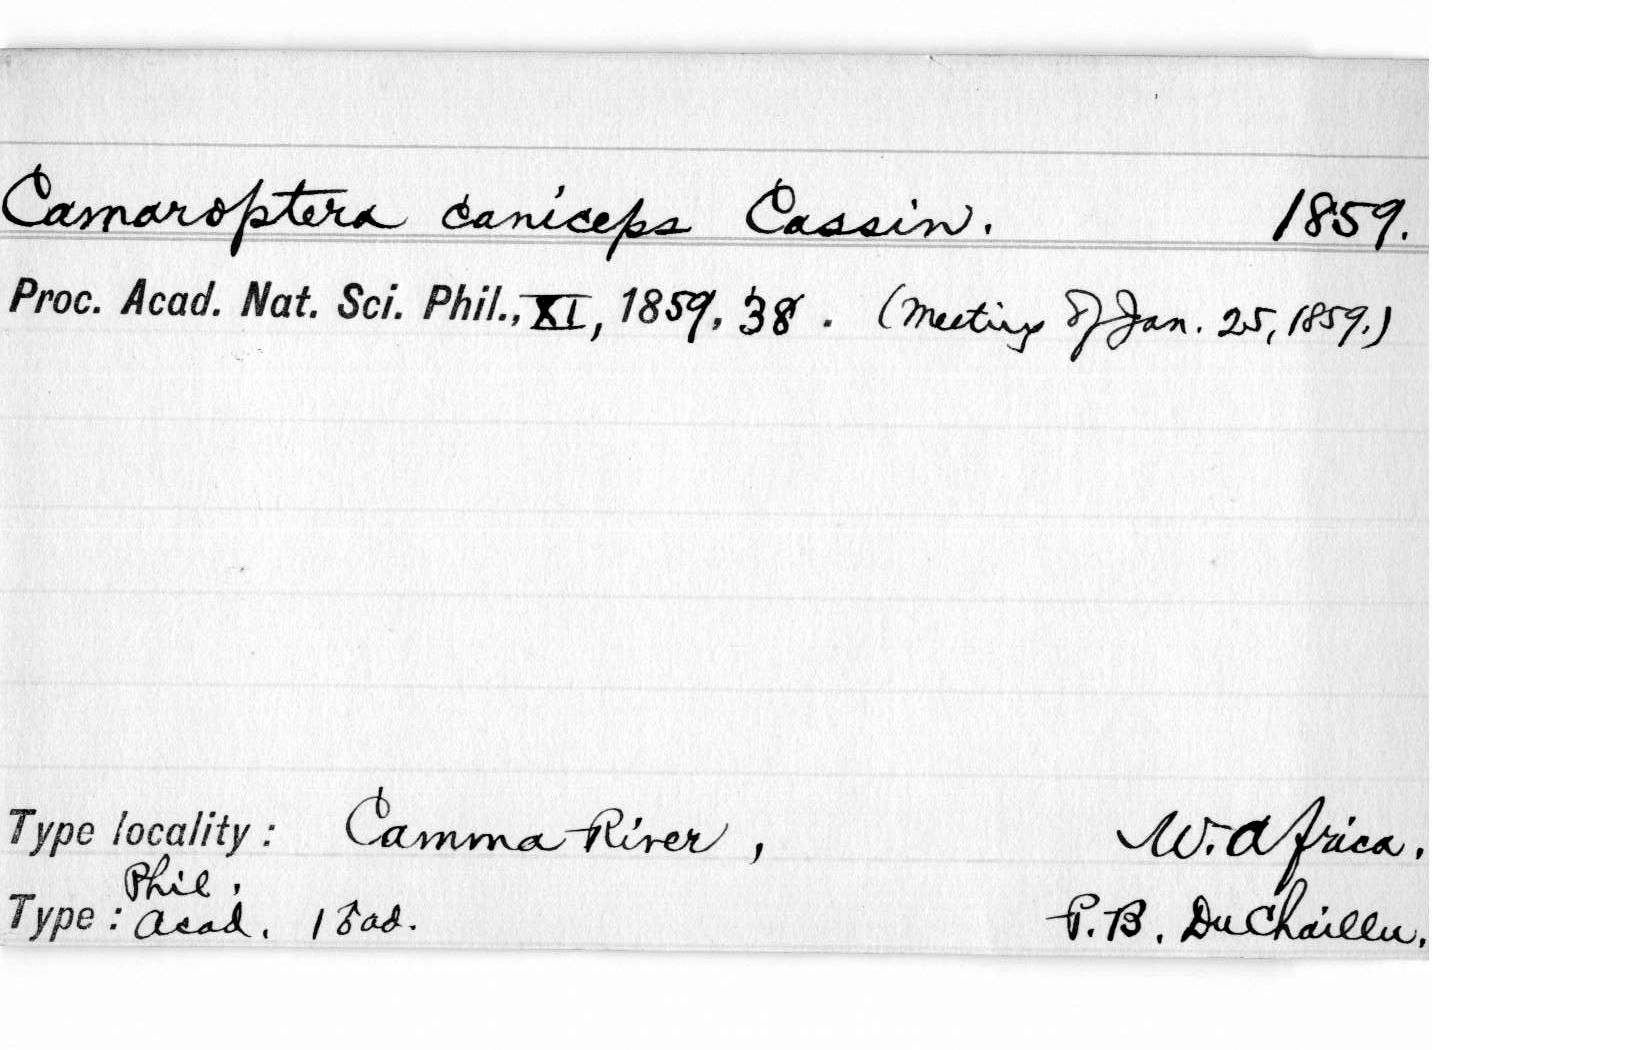 Camaroptera caniceps Cassin. 1859.
Proc. Acad. Nat. Sci. Phil., XI, 1859, 38. (Meeting of Jan. 25, 1859.)
Type locality: Camma River, W. Africa.
Phil.
Type: Acad. 1 ad. P. B. DuChaillu.